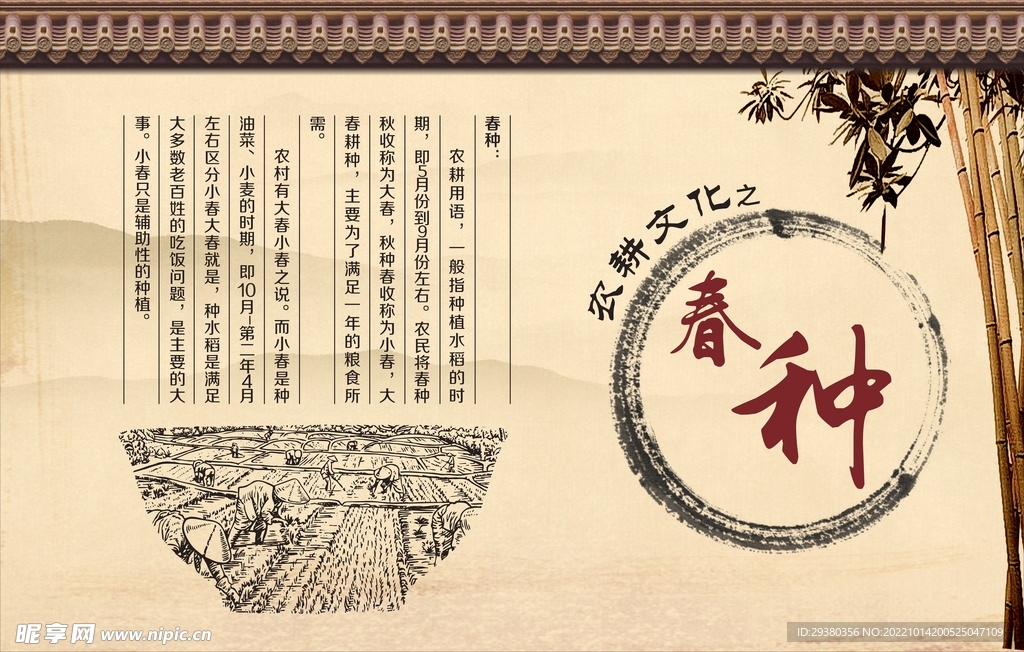 农耕文化之
春种
春种：
农耕用语，一般指种植水稻的时
期，即5月份到9月份左右。农民将春种
秋收称为大春，秋种春收称为小春，大
春耕种，主要为了满足一年的粮食所
需。
农村有大春小春之说。而小春是种
油菜、小麦的时期，即10月-第二年4月
左右区分小春大春就是，种水稻是满足
大多数老百姓的吃饭问题，是主要的大
事。小春只是辅助性的种植。
昵享网 www.nipic.cn
ID:29380356 NO:20221014200525047109